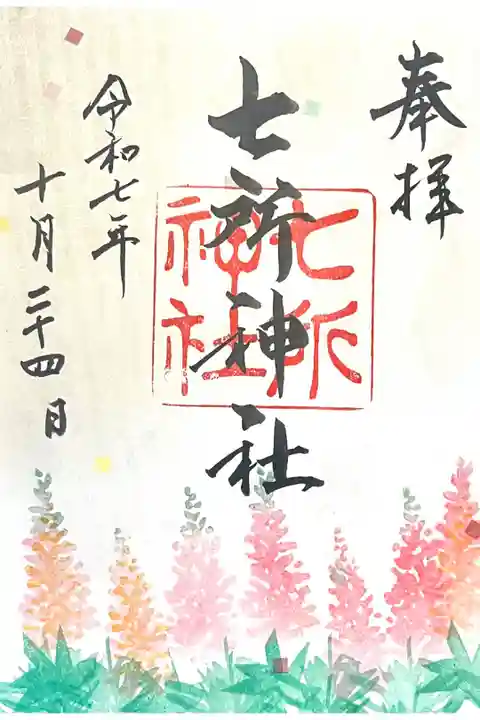 奉拝
七所神社
七所
神社
令和七年
十月二十四日